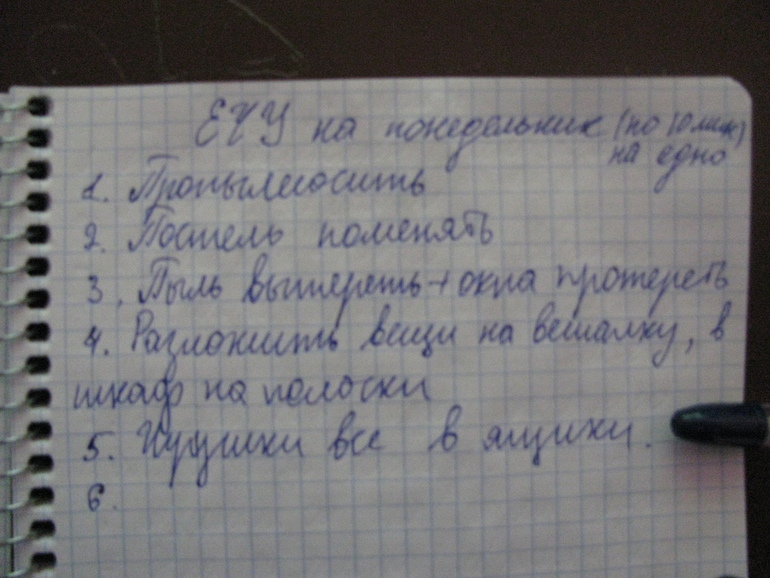 ЕЧУ на понедельник (по 10 мин)
на едно
1. Пропылесосить
2. Постель поменять
3. Пыль вытереть + окна протереть
4. Разложить вещи на вешалку, в
шкаф на полоски
5. Игрушки все в ящики.
6.